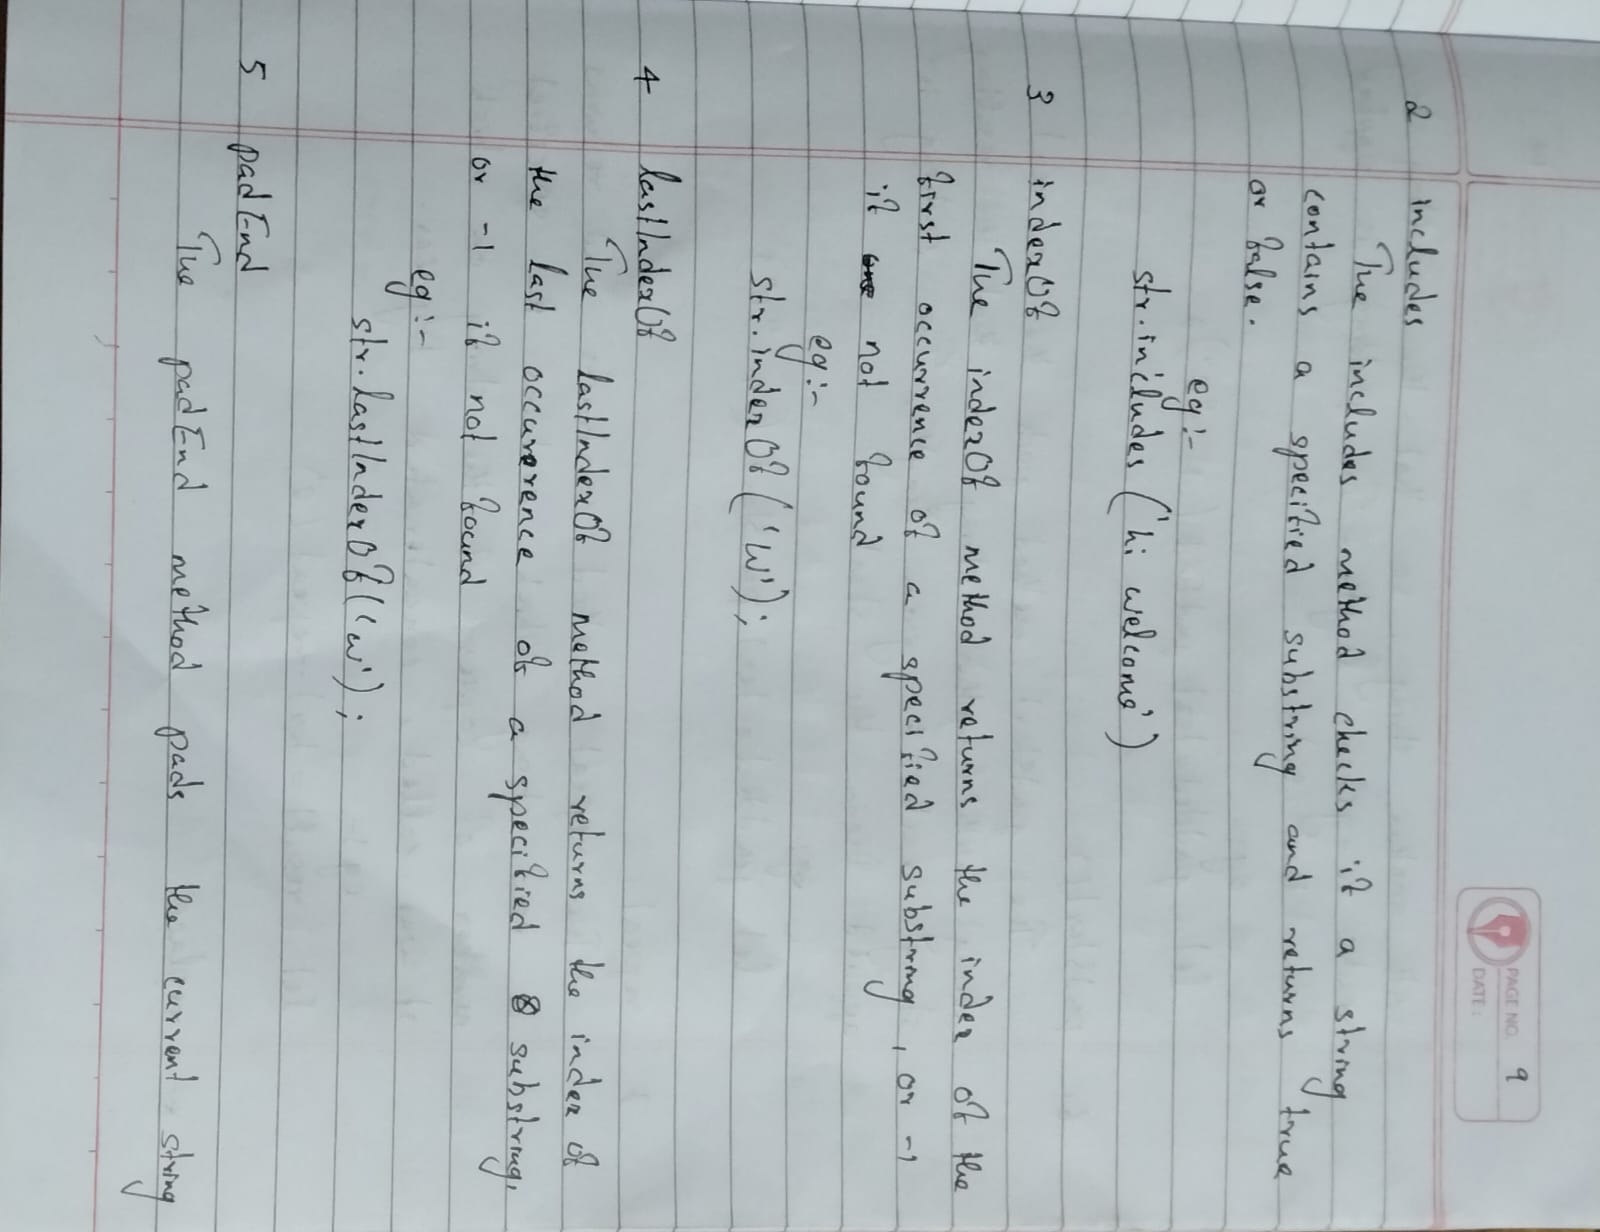 PAGE NO. 9
DATE :
2 includes
The includes method checks if a string
contains a specified substring and returns true
or false.
eg :-
str.includes ('hi welcome')
3 indexOf
The indexOf method returns the index of the
first occurrence of a specified substring, or -1
if not found
eg :-
str.indexOf ('W');
4 lastIndexOf
The lastIndexOf method returns the index of
the last occurerence of a specified substring,
or -1 if not found
eg :-
str.lastIndexOf('w');
5 padEnd
The padEnd method pads the current string